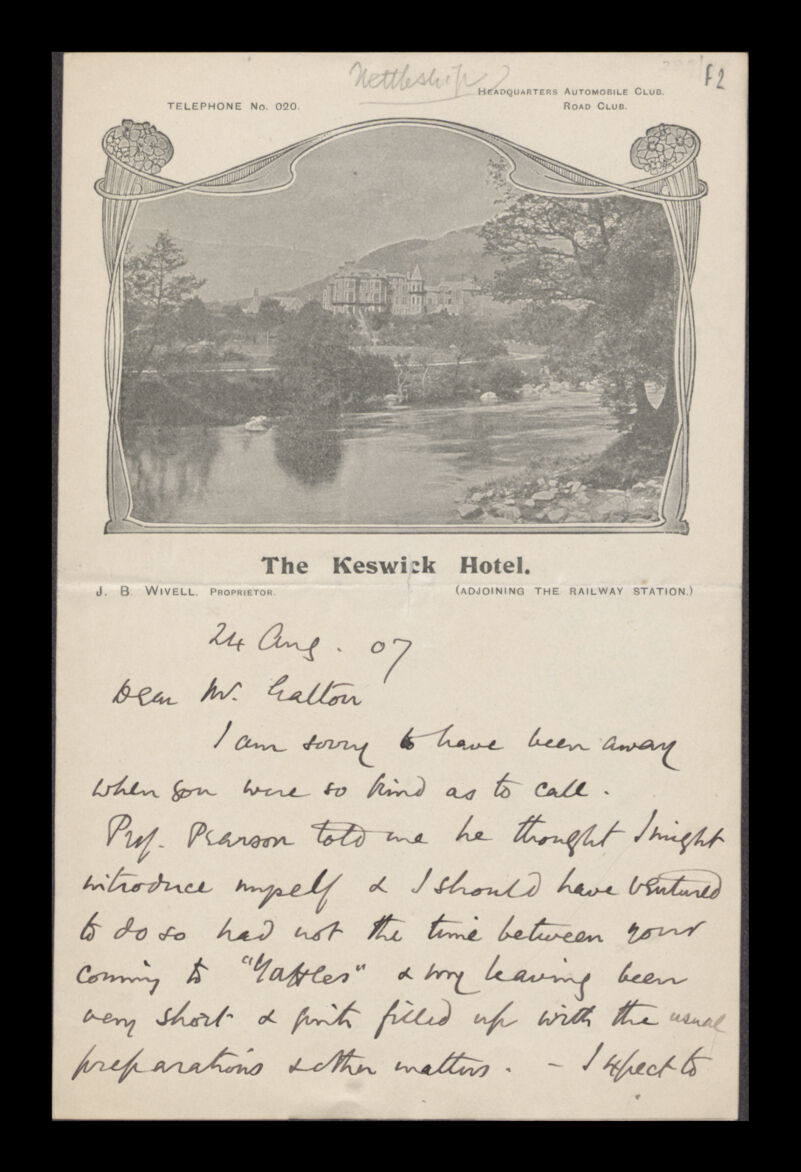 Nettleship
f2
HEADQUARTERS AUTOMOBILE CLUB.
TELEPHONE No. 020.
ROAD CLUB.
The Keswick Hotel.
J. B. WIVELL. PROPRIETOR.
(ADJOINING THE RAILWAY STATION.)
24 Aug. 07
Dear Mr. Galton
I am sorry to have been away
when you were so kind as to call.
Prof. Pearson told me he thought I might
introduce myself & I should have ventured
to do so had not the time between your
coming to "Yaffles" & my leaving been
very short & quite filled up with the usual
preparations & other matters. – I expect to